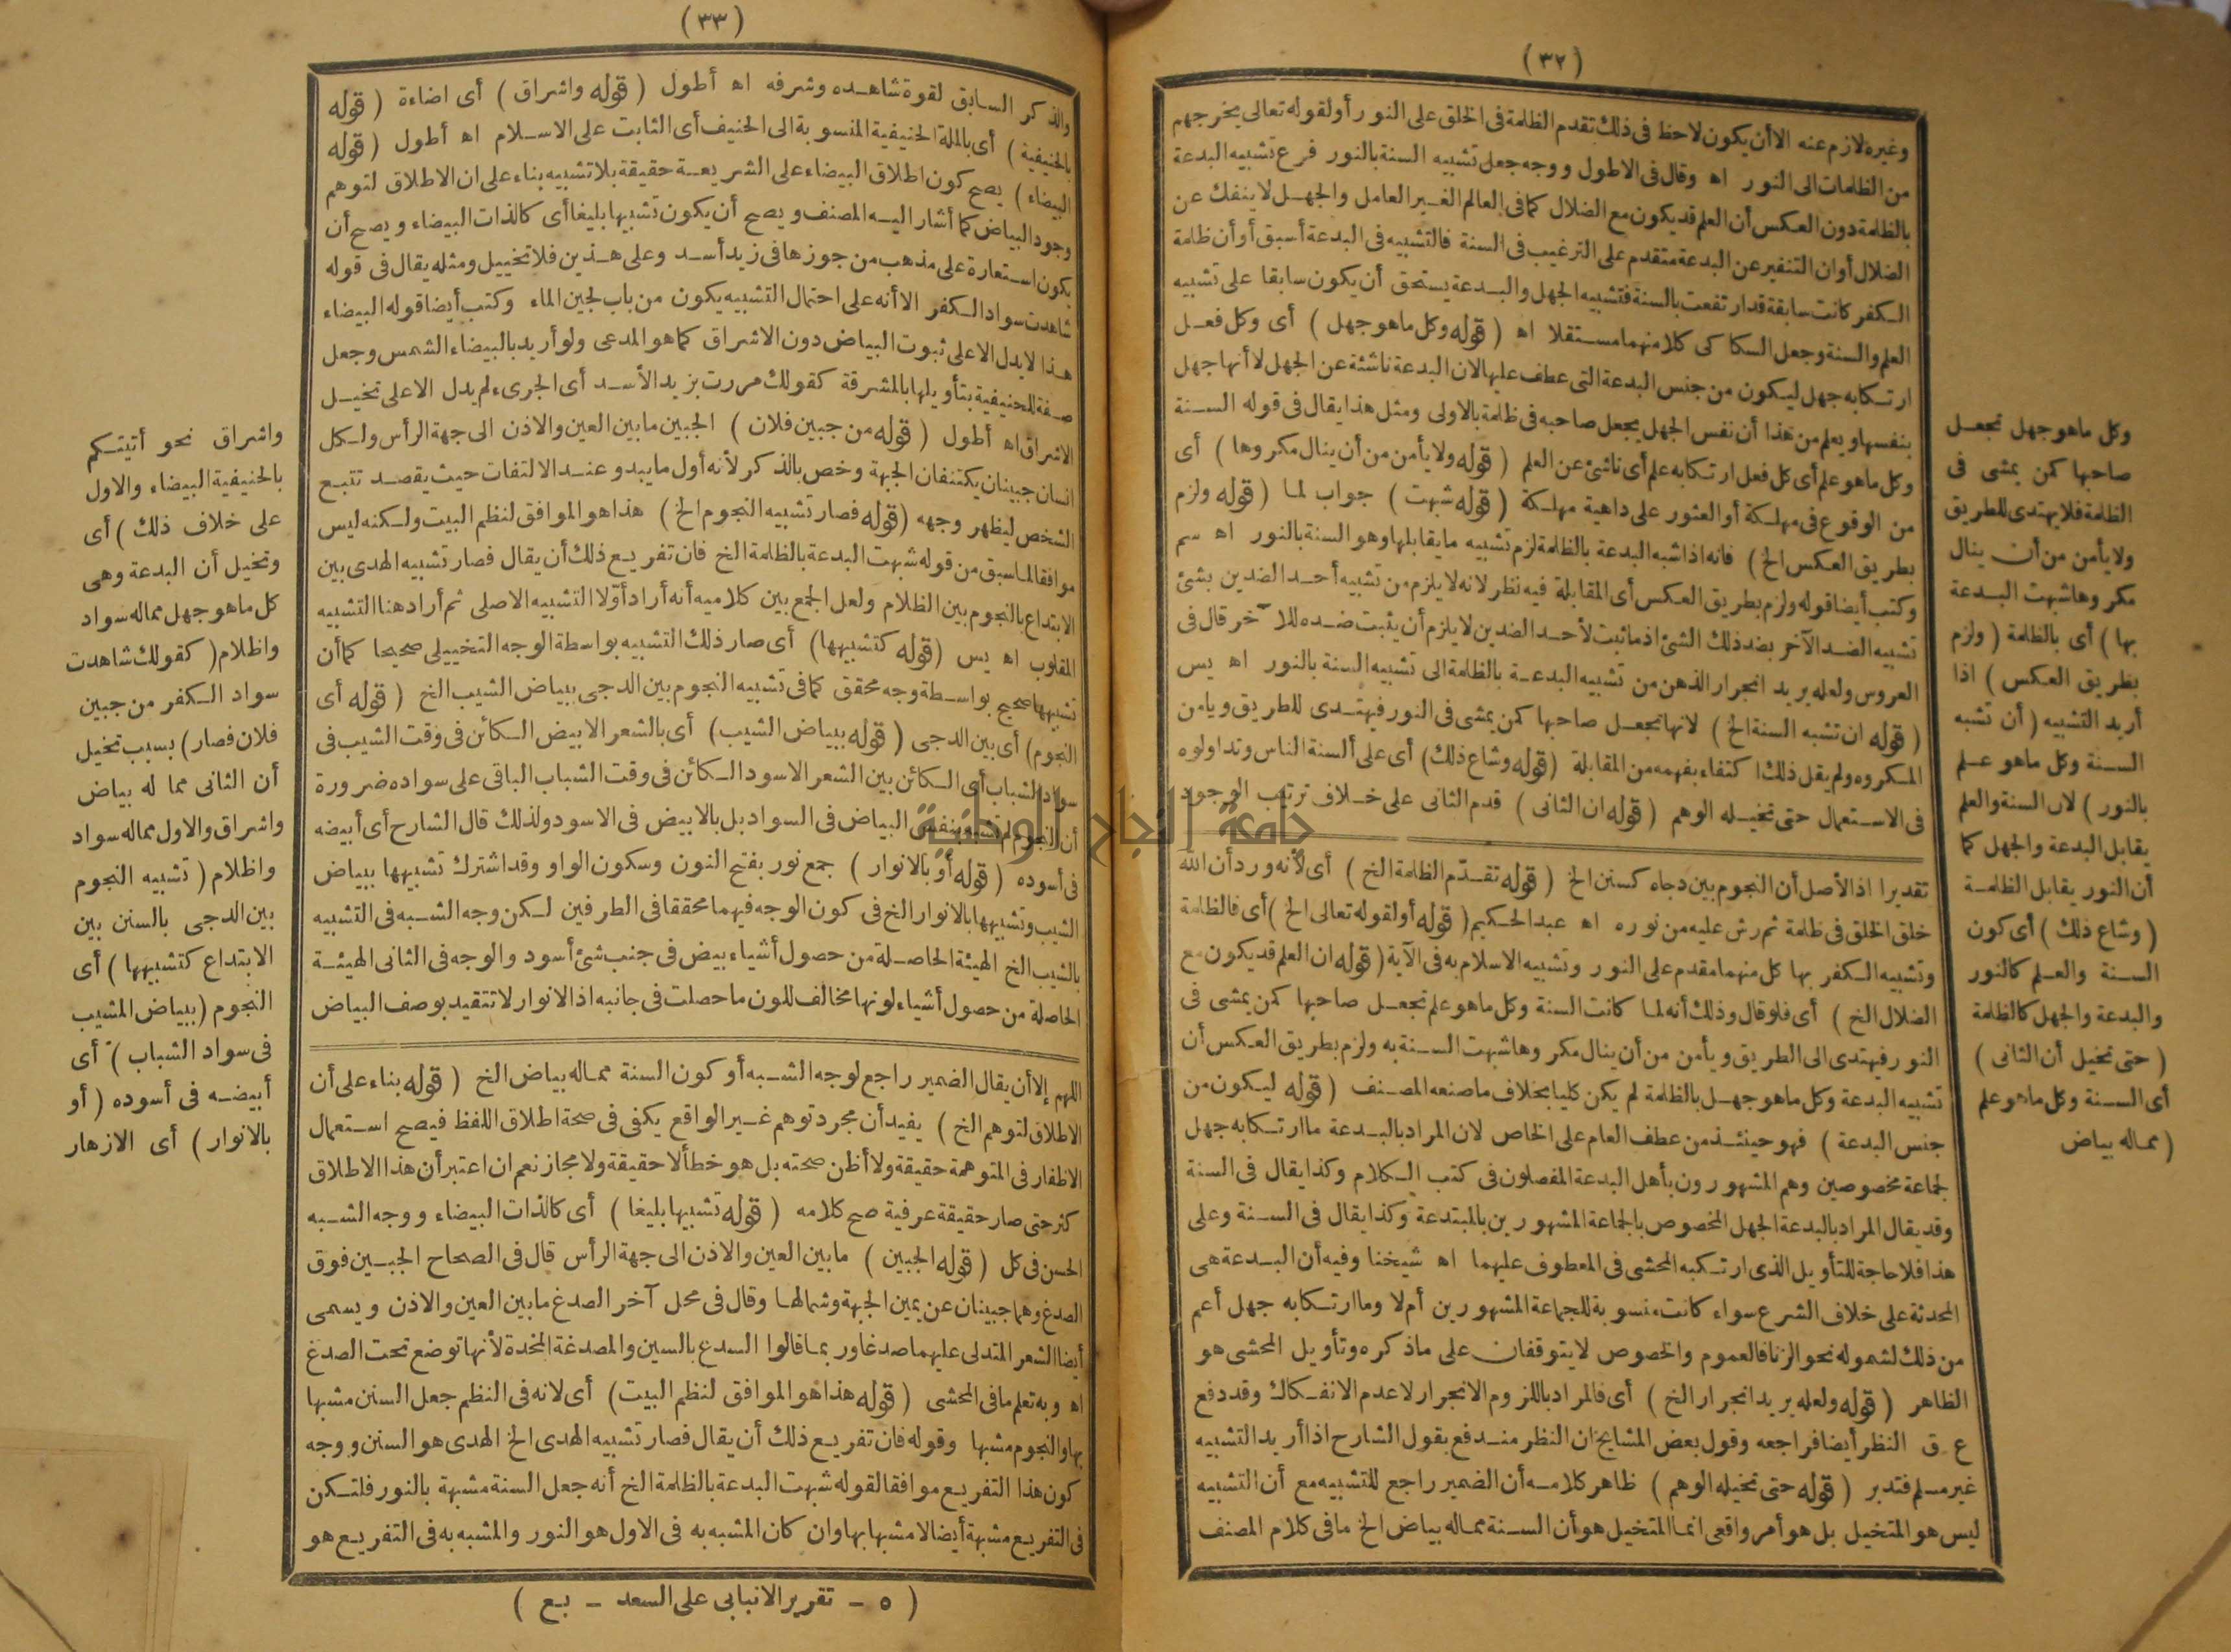 (٣٢)
وغيره لازم عنه الا أن يكون لاحظ فى ذلك تقدم الظلمة فى الخلق على النور أو لقوله تعالى يخرجهم
من الظلمات الى النور اه وقال فى الاطول ووجه جعل تشبيه السنة بالنور فرع تشبيه البدعة
بالظلمة دون العكس أن العلم قد يكون مع الضلال كما فى العالم الغير العامل والجهل لا ينفك عن
الضلال أو ان التنفير عن البدعة متقدم على الترغيب فى السنة فالتشبيه فى البدعة أسبق أو أن ظلمة
الكفر كانت سابقة قد ارتفعت بالسنة فتشبيه الجهل والبدعة يستحق أن يكون سابقا على تشبيه
العلم والسنة وجعل السكاكى كلا منهما مستقلا اه (قوله وكل ما هو جهل) أى وكل فعل
ارتكابه جهل ليكون من جنس البدعة التى عطف عليها لان البدعة ناشئة عن الجهل لا أنها جهل
بنفسها ويعلم من هذا أن نفس الجهل يجعل صاحبه فى ظلمة بالاولى ومثل هذا يقال فى قوله السنة
وكل ما هو علم أى كل فعل ارتكابه علم أى ناشئ عن العلم (قوله ولا يأمن من أن ينال مكروها) أى
من الوقوع فى مهلكة أو العثور على داهية مهلكة (قوله شبهت) جواب لما (قوله ولزم
بطريق العكس الخ) فانه اذا شبه البدعة بالظلمة لزم تشبيه ما يقابلها وهو السنة بالنور اه سم
وكتب أيضا قوله ولزم بطريق العكس أى المقابلة فيه نظر لانه لا يلزم من تشبيه أحد الضدين بشئ
تشبيه الضد الآخر بضد ذلك الشئ اذ ما ثبت لأحد الضدين لا يلزم أن يثبت ضده للآخر قال فى
العروس ولعله يريد انجرار الذهن من تشبيه البدعة بالظلمة الى تشبيه السنة بالنور اه يس
(قوله ان تشبه السنة الخ) لانها تجعل صاحبها كمن يمشى فى النور فيهتدى للطريق ويأمن
المكروه ولم يقل ذلك اكتفاء بفهمه من المقابلة (قوله وشاع ذلك) أى على ألسنة الناس وتداولوه
فى الاستعمال حتى تخيله الوهم (قوله ان الثانى) قدم الثانى على خلاف ترتيب الوجود
تقديرا اذ الأصل أن النجوم بين دجاه كسنن الخ (قوله تقدّم الظلمة الخ) أى لأنه ورد أن الله
خلق الخلق فى ظلمة ثم رش عليه من نوره اه عبد الحكيم (قوله أو لقوله تعالى الخ) أى فالظلمة
وتشبيه الكفر بها كل منهما مقدم على النور وتشبيه الاسلام به فى الآية (قوله ان العلم قد يكون مع
الضلال الخ) أى فلو قال وذلك أنه لما كانت السنة وكل ما هو علم تجعل صاحبها كمن يمشى فى
النور فيهتدى الى الطريق ويأمن من أن ينال مكروها شبهت السنة به ولزم بطريق العكس أن
تشبيه البدعة وكل ما هو جهل بالظلمة لم يكن كليا بخلاف ما صنعه المصنف (قوله ليكون من
جنس البدعة) فهو حينئذ من عطف العام على الخاص لان المراد بالبدعة ما ارتكابه جهل
لجماعة مخصوصين وهم المشهورون بأهل البدعة المفصلون فى كتب الكلام وكذا يقال فى السنة
وقد يقال المراد بالبدعة الجهل المخصوص بالجماعة المشهورين بالمبتدعة وكذا يقال فى السنة وعلى
هذا فلا حاجة للتأويل الذى ارتكبه المحشى فى المعطوف عليهما اه شيخنا وفيه أن البدعة هى
المحدثة على خلاف الشرع سواء كانت منسوبة للجماعة المشهورين أم لا وما ارتكابه جهل أعم
من ذلك لشموله نحو الزنا فالعموم والخصوص لا يتوقفان على ما ذكره وتأويل المحشى هو
الظاهر (قوله ولعله يريد انجرار الخ) أى فالمراد باللزوم الانجرار لا عدم الانفكاك وقد دفع
ع ق النظر أيضا فراجعه وقول بعض المشايخ ان النظر مندفع بقول الشارح اذا أريد التشبيه
غير مسلم فتدبر (قوله حتى تخيله الوهم) ظاهر كلامه أن الضمير راجع للتشبيه مع أن التشبيه
ليس هو المتخيل بل هو أمر واقعى انما المتخيل هو أن السنة مما له بياض الخ ما فى كلام المصنف
وكل ما هو جهل تجعل
صاحبها كمن يمشى فى
الظلمة فلا يهتدى للطريق
ولا يأمن من أن ينال
مكروها شبهت البدعة
بها) أى بالظلمة (ولزم
بطريق العكس) اذا
أريد التشبيه (أن تشبه
السنة وكل ما هو علم
بالنور) لان السنة والعلم
يقابل البدعة والجهل كما
أن النور يقابل الظلمة
(وشاع ذلك) أى كون
السنة والعلم كالنور
والبدعة والجهل كالظلمة
(حتى تخيل أن الثانى)
أى السنة وكل ما هو علم
(مما له بياض
(٣٣)
والذكر السابق لقوة شاهده وشرفه اه أطول (قوله واشراق) أى اضاءة (قوله
بالحنيفية) أى بالملة الحنيفية المنسوبة الى الحنيف أى الثابت على الاسلام اه أطول (قوله
البيضاء) يصح كون اطلاق البيضاء على الشريعة حقيقة بلا تشبيه بناء على ان الاطلاق لتوهم
وجود البياض كما أشار اليه المصنف ويصح أن يكون تشبيها بليغا أى كالذات البيضاء ويصح أن
يكون استعارة على مذهب من جوزها فى زيد أسد وعلى هذين فلا تخييل ومثله يقال فى قوله
شاهدت سواد الكفر الا أنه على احتمال التشبيه يكون من باب لجين الماء وكتب أيضا قوله البيضاء
هذا لا يدل الا على ثبوت البياض دون الاشراق كما هو المدعى ولو أريد بالبيضاء الشمس وجعل
صفة للحنيفية بتأويلها بالمشرقة كقولك مررت بزيد الأسد أى الجرىء لم يدل الا على تخيل
الاشراق اه أطول (قوله من جبين فلان) الجبين ما بين العين والاذن الى جهة الرأس ولكل
انسان جبينان يكتنفان الجبهة وخص بالذكر لأنه أول ما يبدو عند الالتفات حيث يقصد تتبع
الشخص ليظهر وجهه (قوله فصار تشبيه النجوم الخ) هذا هو الموافق لنظم البيت ولكنه ليس
موافقا لما سبق من قوله شبهت البدعة بالظلمة الخ فان تفريع ذلك أن يقال فصار تشبيه الهدى بين
الابتداع بالنجوم بين الظلام ولعل الجمع بين كلاميه أنه أراد أوّلا التشبيه الاصلى ثم أراد هنا التشبيه
المقلوب اه يس (قوله كتشبيهها) أى صار ذلك التشبيه بواسطة الوجه التخييلى صحيحا كما أن
تشبيهها صحيح بواسطة وجه محقق كما فى تشبيه النجوم بين الدجى ببياض الشيب الخ (قوله أى
النجوم) أى بين الدجى (قوله ببياض الشيب) أى بالشعر الابيض الكائن فى وقت الشيب فى
سواد الشباب أى الكائن بين الشعر الاسود الكائن فى وقت الشباب الباقى على سواده ضرورة
أن النجوم لم تشبه بنفس البياض فى السواد بل بالابيض فى الاسود ولذلك قال الشارح أى أبيضه
فى أسوده (قوله أو بالانوار) جمع نور بفتح النون وسكون الواو وقد اشترك تشبيهها ببياض
الشيب وتشبيهها بالانوار الخ فى كون الوجه فيهما محققا فى الطرفين لكن وجه الشبه فى التشبيه
بالشيب الخ الهيئة الحاصلة من حصول أشياء بيض فى جنب شئ أسود والوجه فى الثانى الهيئة
الحاصلة من حصول أشياء لونها مخالف للون ما حصلت فى جانبه اذ الانوار لا تتقيد بوصف البياض
اللهم إلا أن يقال الضمير راجع لوجه الشبه أو كون السنة مما له بياض الخ (قوله بناء على أن
الاطلاق لتوهم الخ) يفيد أن مجرد توهم غير الواقع يكفى فى صحة اطلاق اللفظ فيصح استعمال
الاظفار فى المتوهمة حقيقة ولا أظن صحته بل هو خطأ لا حقيقة ولا مجاز نعم ان اعتبر أن هذا الاطلاق
كثر حتى صار حقيقة عرفية صح كلامه (قوله تشبيها بليغا) أى كالذات البيضاء ووجه الشبه
الحسن فى كل (قوله الجبين) ما بين العين والاذن الى جهة الرأس قال فى الصحاح الجبين فوق
الصدغ وهما جبينان عن يمين الجبهة وشمالها وقال فى محل آخر الصدغ ما بين العين والاذن ويسمى
أيضا الشعر المتدلى عليهما صدغا وربما قالوا السدغ بالسين والمصدغة المخدة لأنها توضع تحت الصدغ
اه وبه تعلم ما فى المحشى (قوله هذا هو الموافق لنظم البيت) أى لانه فى النظم جعل السنن مشبها
بها والنجوم مشبها وقوله فان تفريع ذلك أن يقال فصار تشبيه الهدى الخ الهدى هو السنن ووجه
كون هذا التفريع موافقا لقوله شبهت البدعة بالظلمة الخ أنه جعل السنة مشبهة بالنور فلتكن
فى التفريع مشبهة أيضا لا مشبها بها وان كان المشبه به فى الاول هو النور والمشبه به فى التفريع هو
واشراق نحو أتيتكم
بالحنيفية البيضاء والاول
على خلاف ذلك) أى
وتخيل أن البدعة وهى
كل ما هو جهل مما له سواد
واظلام (كقولك شاهدت
سواد الكفر من جبين
فلان فصار) بسبب تخيل
أن الثانى مما له بياض
واشراق والاول مما له سواد
واظلام (تشبيه النجوم
بين الدجى بالسنن بين
الابتداع كتشبيهها) أى
النجوم (ببياض المشيب
فى سواد الشباب) أى
أبيضه فى أسوده (أو
بالانوار) أى الازهار
(٥ - تقرير الانبابى على السعد - بع)
جامعة النجاح الوطنية